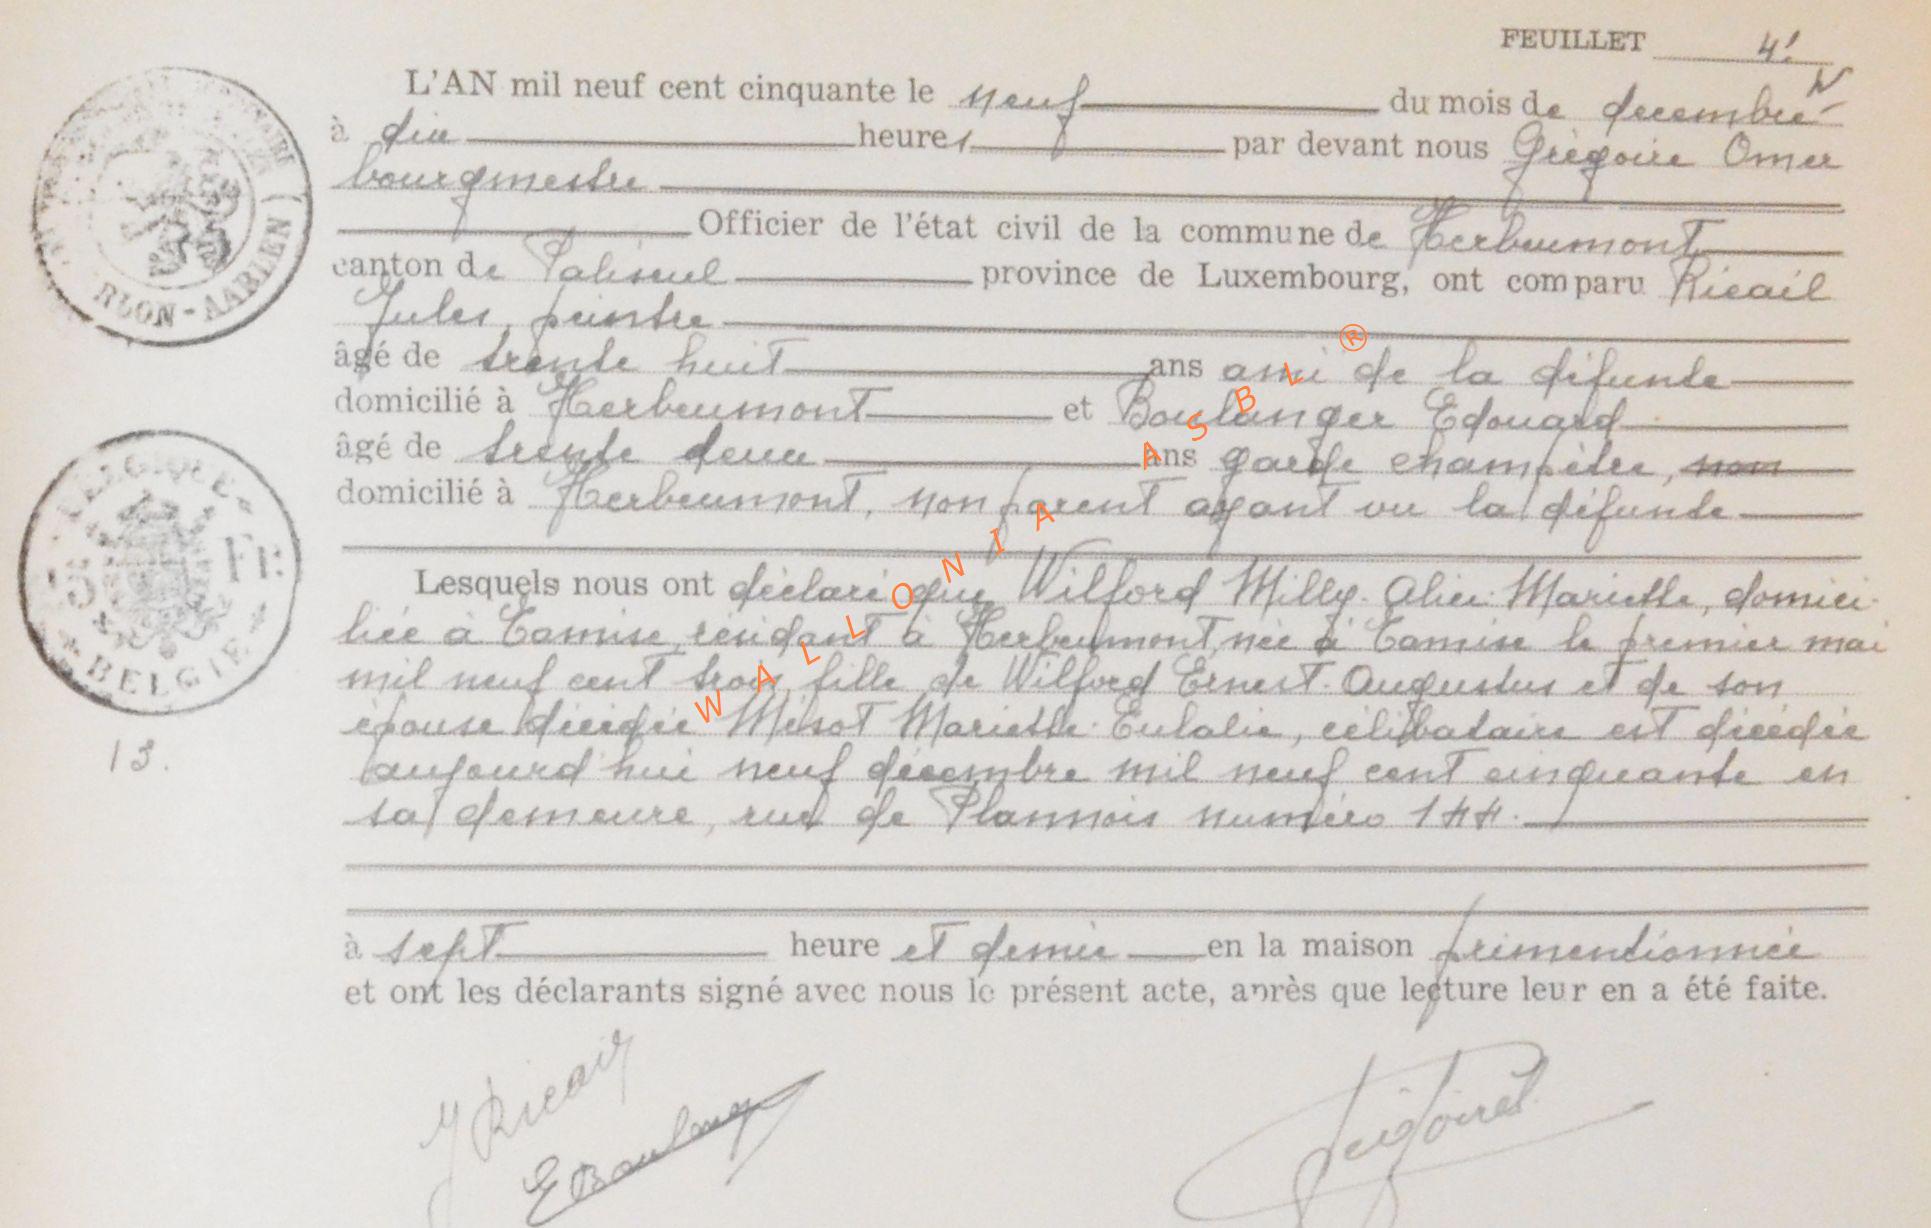 FEUILLET 4!
L'AN mil neuf cent cinquante le neuf du mois de decembre
à dix heures par devant nous Grégoire Omer
bourgmestre
Officier de l'état civil de la commune de Herbeumont
canton de Paliseul province de Luxembourg, ont comparu Ricail
Jules, peintre
âgé de trente huit ans ami de la défunte
domicilié à Herbeumont et Boulanger Edouard
âgé de trente deux ans garde champêtre, non
domicilié à Herbeumont, non parent ayant vu la défunte
Lesquels nous ont déclaré que Wilford Milly-Alice-Mariette, domici-
liée à Tamise, résidant à Herbeumont, née à Tamise le premier mai
mil neuf cent trois, fille de Wilford Ernest-Augustus et de son
épouse décédée Mésot Mariette-Eulalie, célibataire est décédée
aujourd'hui neuf décembre mil neuf cent cinquante en
sa demeure, rue de Plannois numéro 144.
à sept heure et demie en la maison prémentionnée
et ont les déclarants signé avec nous le présent acte, après que lecture leur en a été faite.
J Ricail
E Boulanger
RLON - AARLEN
BELGIQUE
5 Fr
BELGIE
13.
WALLONIA ASBL ®